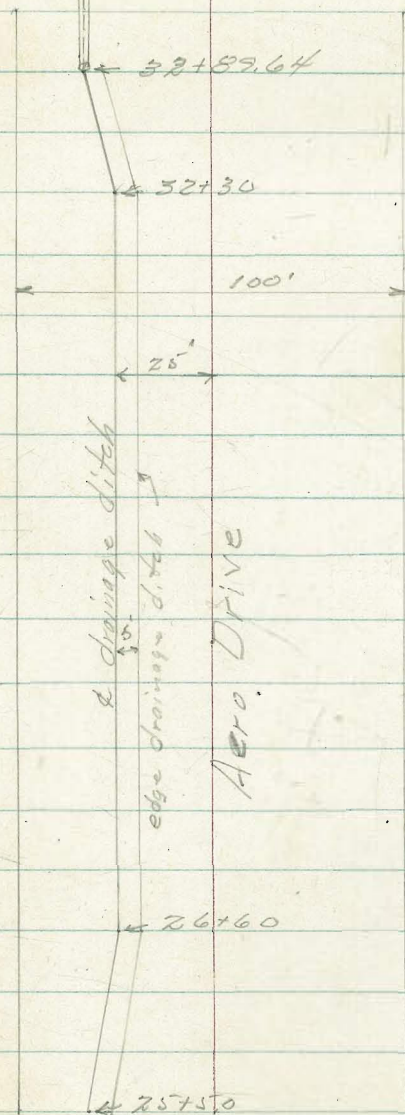 32+89.64
32+30
100'
25'
℄ drainage ditch
5'
edge drainage ditch
Aero Drive
26+60
25+50